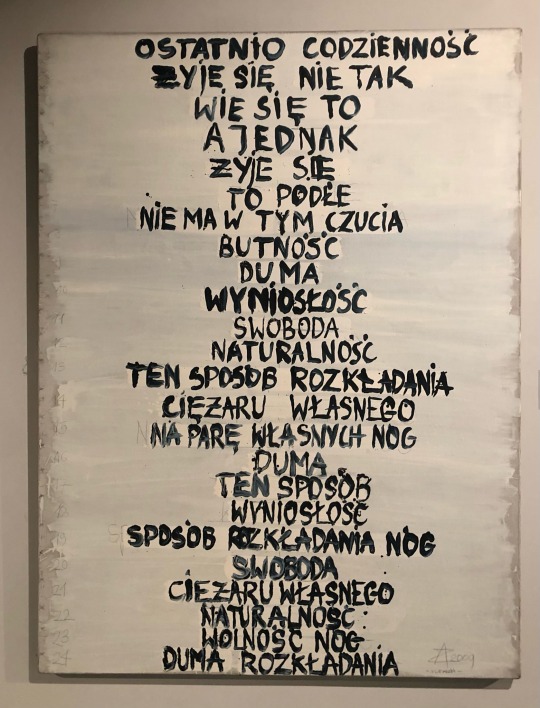 OSTATNIO CODZIENNOŚĆ
ŻYJE SIĘ NIE TAK
WIE SIĘ TO
A JEDNAK
ŻYJE SIĘ
TO PODŁE
NIE MA W TYM CZUCIA
BUTNOŚĆ
DUMA
WYNIOSŁOŚĆ
SWOBODA
NATURALNOŚĆ
TEN SPOSÓB ROZKŁADANIA
CIĘŻARU WŁASNEGO
NA PARĘ WŁASNYCH NÓG
DUMA
TEN SPOSÓB
WYNIOSŁOŚĆ
SPOSÓB ROZKŁADANIA NÓG
SWOBODA
CIĘŻARU WŁASNEGO
NATURALNOŚĆ
WOLNOŚĆ NÓG
DUMA ROZKŁADANIA
2009